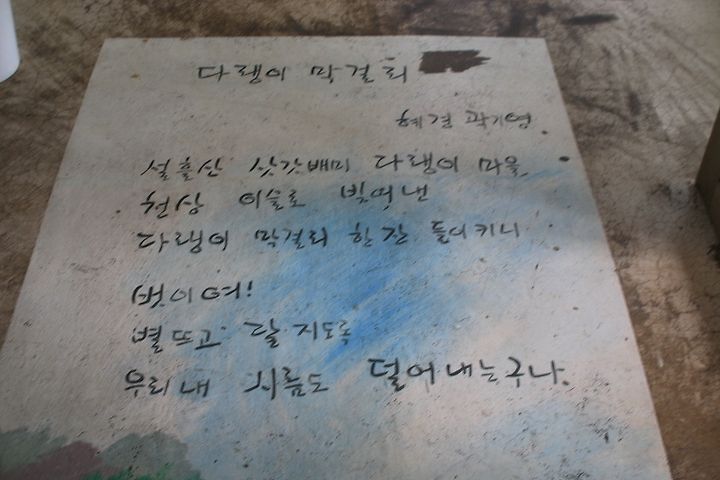 다랭이 막걸리
혜결 곽기영
설흘산 삿갓배미 다랭이 마을
천상 이슬로 빚어낸
다랭이 막걸리 한잔 들이키니
벗이여!
별 뜨고 달 지도록
우리네 시름도 덜어내는구나.